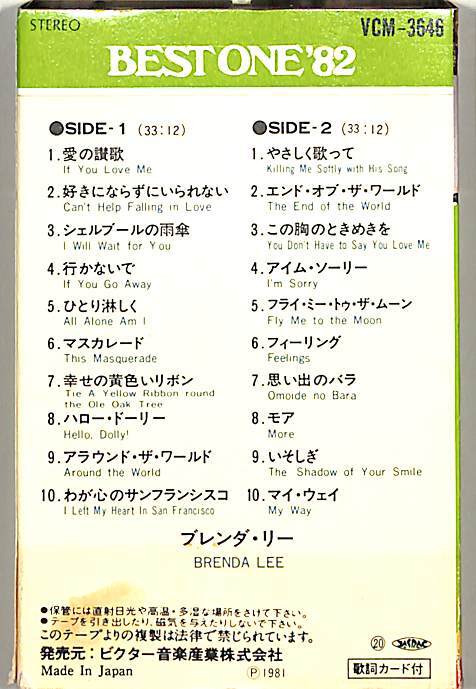 STEREO
VCM-3646
BEST ONE '82
●SIDE-1 (33:12)
1.愛の讃歌
If You Love Me
2.好きにならずにいられない
Can't Help Falling in Love
3.シェルブールの雨傘
I Will Wait for You
4.行かないで
If You Go Away
5.ひとり淋しく
All Alone Am I
6.マスカレード
This Masquerade
7.幸せの黄色いリボン
Tie A Yellow Ribbon round
the Ole Oak Tree
8.ハロー・ドーリー
Hello, Dolly!
9.アラウンド・ザ・ワールド
Around the World
10.わが心のサンフランシスコ
I Left My Heart In San Francisco
●SIDE-2 (33:12)
1.やさしく歌って
Killing Me Softly with His Song
2.エンド・オブ・ザ・ワールド
The End of the World
3.この胸のときめきを
You Don't Have to Say You Love Me
4.アイム・ソーリー
I'm Sorry
5.フライ・ミー・トゥ・ザ・ムーン
Fly Me to the Moon
6.フィーリング
Feelings
7.思い出のバラ
Omoide no Bara
8.モア
More
9.いそしぎ
The Shadow of Your Smile
10.マイ・ウェイ
My Way
ブレンダ・リー
BRENDA LEE
●保管には直射日光や高温・多湿な場所をさけて下さい。
●テープを引き出したり、磁気を与えたりしないで下さい。
このテープよりの複製は法律で禁じられています。
発売元:ビクター音楽産業株式会社
Made in Japan
Ⓟ1981
⑳
歌詞カード付